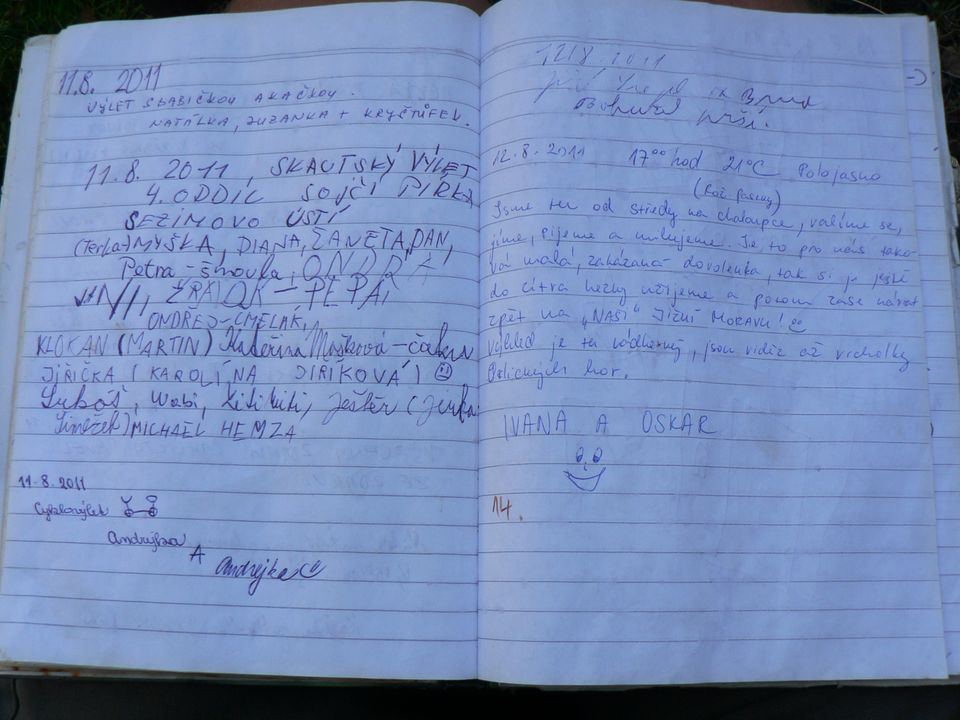 11.8. 2011
VÝLET S BABIČKOU A KAČKOU.
NATÁLKA, ZUZANKA + KRYŠTŮFEK.
11.8. 2011, SKAUTSKÝ VÝLET
4. ODDÍL SOJČÍ PÍRKA
SEZIMOVO ÚSTÍ
(Terka) MYŠKA, DIANA, ŽANETA, DAN,
Petra - šmoula, ONDRA
PEPA,
ONDŘEJ - ČMELÁK,
KLOKAN (MARTIN) Kateřina Mašková -
JIŘIČKA (KAROLÍNA JIRÍKOVÁ)
Luboš, Wabi, Kitikiti, Ještěr (Jirka
Šimeček) MICHAEL HEMZA
11.8.2011
Cyklovýlet
Andrejka
A Andrejka
12/8 2011
Brna
Bohužel prší.
12.8.2011 17⁰⁰ hod 21°C Polojasno
Jsme tu od středy na chaloupce, válíme se,
jíme, pijeme a milujeme. Je to pro nás tako-
vá malá, zakázaná dovolenka, tak si ji ještě
do zítra hezky užijeme a potom zase návrat
zpět na "NAŠI" JIŽNÍ MORAVU!
Výhled je tu nádherný, jsou vidět až vrcholky
Orlických hor.
IVANA A OSKAR
14.